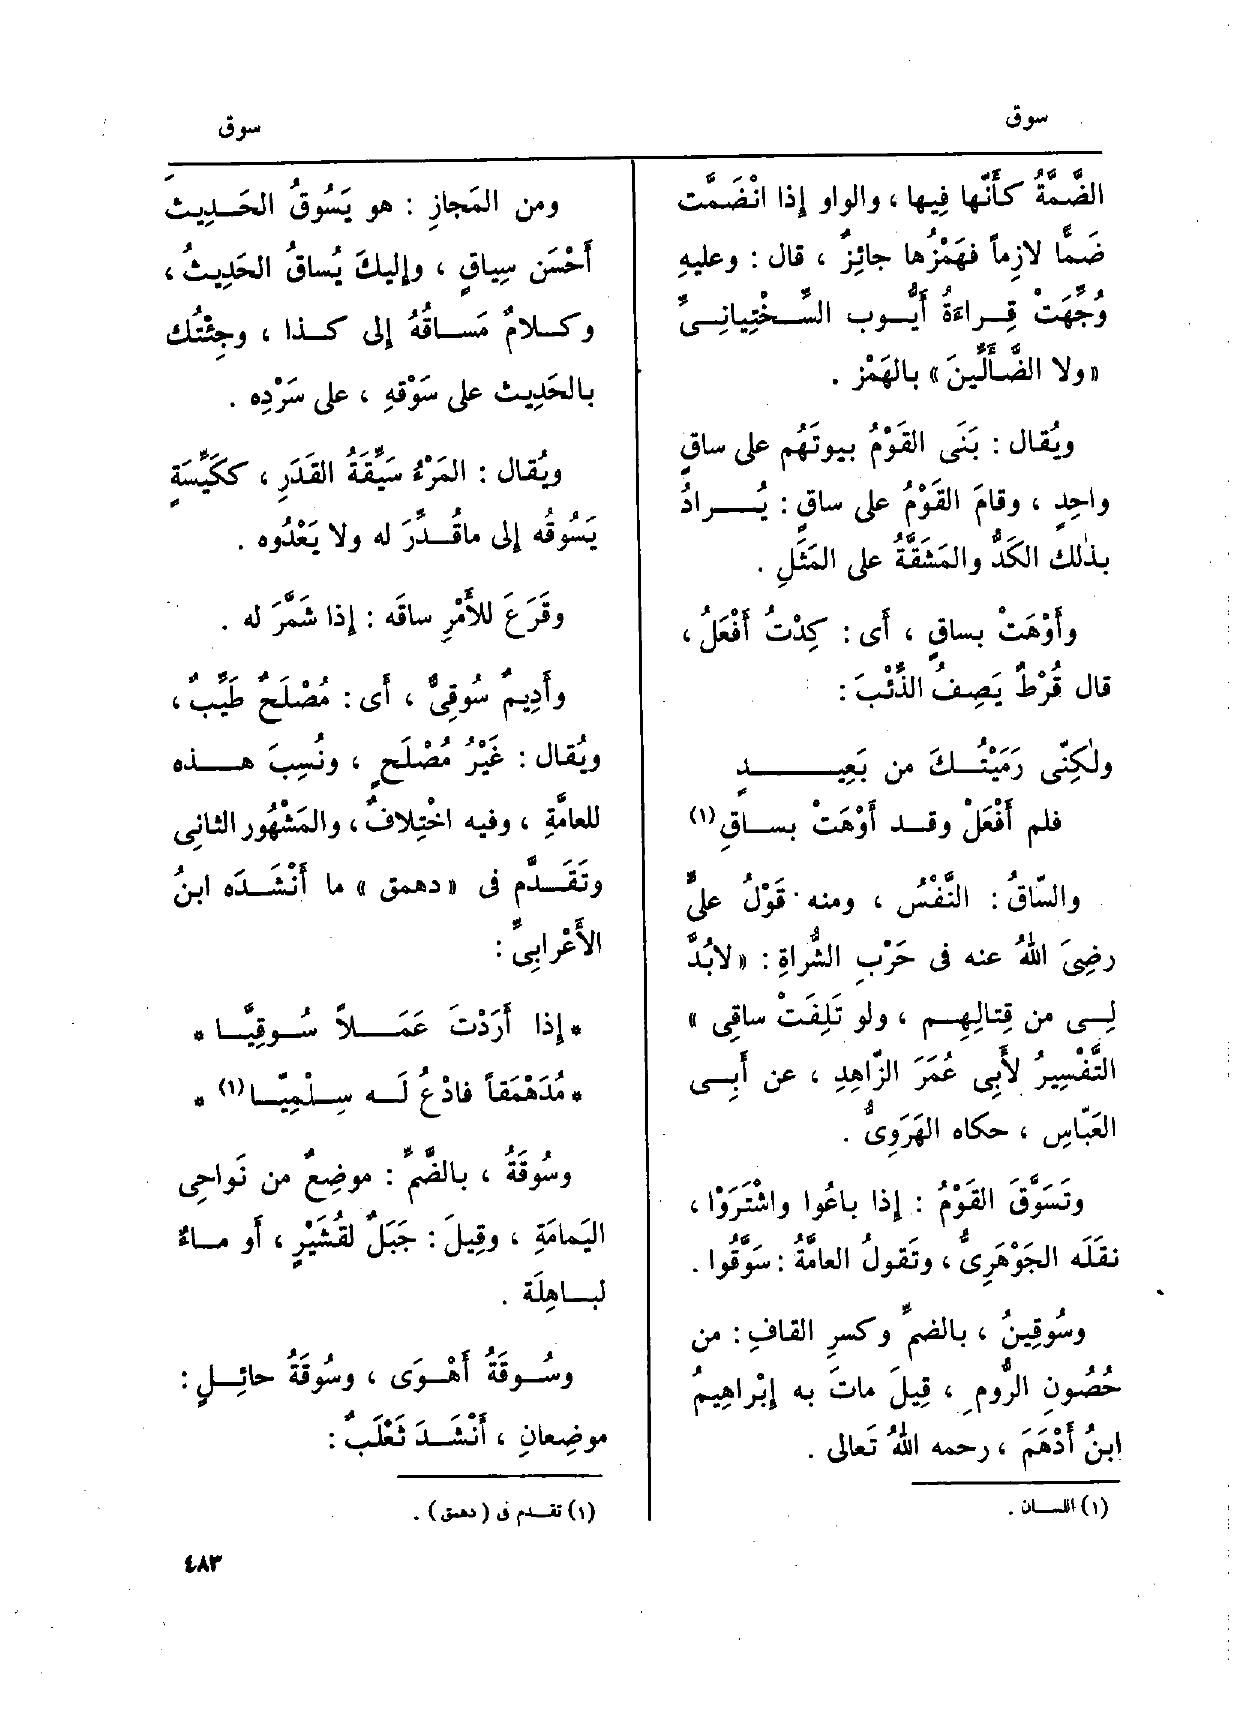 سوق
سوق
الضَّمَّةُ كأَنّها فيها ، والواو إذا انْضَمَّت
ضَمًّا لازِماً فهَمْزُها جائِزٌ ، قال : وعليه
وُجِّهَتْ قِراءَةُ أَيُّوب السَّخْتِيانِىِّ
«ولا الضَّأَلِّينَ» بالهَمْز .
ويُقال : بَنَى القَوْمُ بيوتَهُم على ساقٍ
واحِدٍ ، وقامَ القَوْمُ على ساقٍ : يُرادُ
بذٰلك الكَدُّ والمَشَقَّةُ على المَثَلِ .
وأَوْهَتْ بساقٍ ، أَى : كِدْتُ أَفْعَلُ ،
قال قُرْطٌ يَصِفُ الذِّئْبَ :
ولٰكِنِّى رَمَيْتُكَ من بَعِيدٍ
فلم أَفْعَلْ وقد أَوْهَتْ بساقِ (١)
والسّاقُ : النَّفْسُ ، ومنه قَوْلُ علىٍّ
رضِىَ اللهُ عنه فى حَرْبِ الشُّراةِ : «لابُدَّ
لِى من قِتالِهِم ، ولو تَلِفَتْ ساقِى »
التَّفْسِيرُ لأَبِى عُمَرَ الزّاهِدِ ، عن أَبِى
العَبّاسِ ، حكاه الهَرَوِىُّ .
وتَسَوَّقَ القَوْمُ : إذا باعُوا واشْتَرَوْا ،
نقَلَه الجَوْهَرِىُّ ، وتَقولُ العامَّةُ : سَوَّقُوا .
وسُوقِينُ ، بالضمِّ وكسرِ القافِ : من
حُصُونِ الرُّومِ ، قِيلَ ماتَ به إبْراهِيمُ
ابنُ أَدْهَمَ ، رحمه اللهُ تَعالى .
(١) اللسان .
ومن المَجازِ : هو يَسُوقُ الحَدِيثَ
أَحْسَن سِياقٍ ، وإليكَ يُساقُ الحَدِيثُ ،
وكلامٌ مَساقُهُ إلى كذا ، وجِئْتُك
بالحَدِيث على سَوْقِهِ ، على سَرْدِه .
ويُقال : المَرْءُ سَيِّقَةُ القَدَرِ ، ككَيِّسَةٍ
يَسُوقُه إلى ماقُدِّرَ له ولا يَعْدُوه .
وقَرَعَ للأَمْرِ ساقَه : إذا شَمَّرَ له .
وأَدِيمٌ سُوقِىٌّ ، أَى : مُصْلَحٌ طَيِّبٌ ،
ويُقال : غَيْرُ مُصْلَحٍ ، ونُسِبَ هذه
للعامَّةِ ، وفيه اخْتِلافٌ ، والمَشْهُور الثانِى
وتَقَدَّم فى «دهمق» ما أَنْشَدَه ابنُ
الأَعْرابِىِّ :
* إذا أَرَدْتَ عَمَلاً سُوقِيَّا *
* مُدَهْمَقاً فادْعُ لَه سِلْمِيَّا (١) *
وسُوقَةُ ، بالضَّمِّ : موضِعٌ من نَواحِى
اليَمامَةِ ، وقِيلَ : جَبَلٌ لقُشَيْرٍ ، أو ماءٌ
لباهِلَة .
وسُوقَةُ أَهْوَى ، وسُوقَةُ حائِلٍ :
موضِعانِ ، أَنْشَدَ ثَعْلَبٌ :
(١) تقدم فى (دهمق) .
٤٨٣